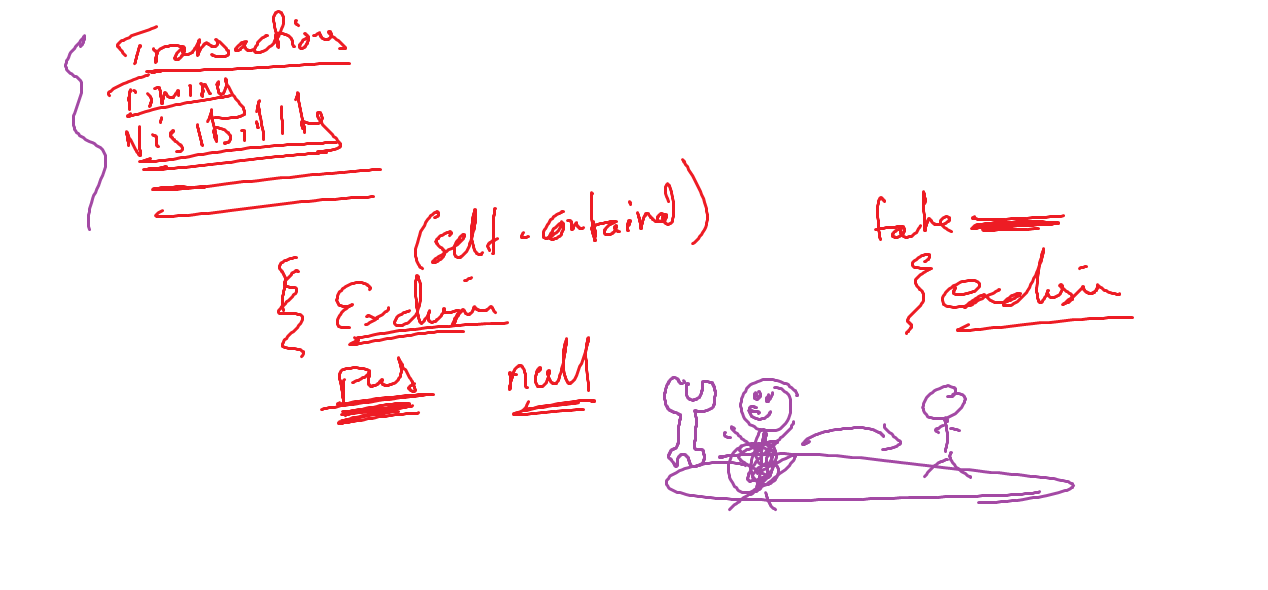 Transactions
Timing
Visibility
(self-contained)
Exclusion
put null
take
exclusion